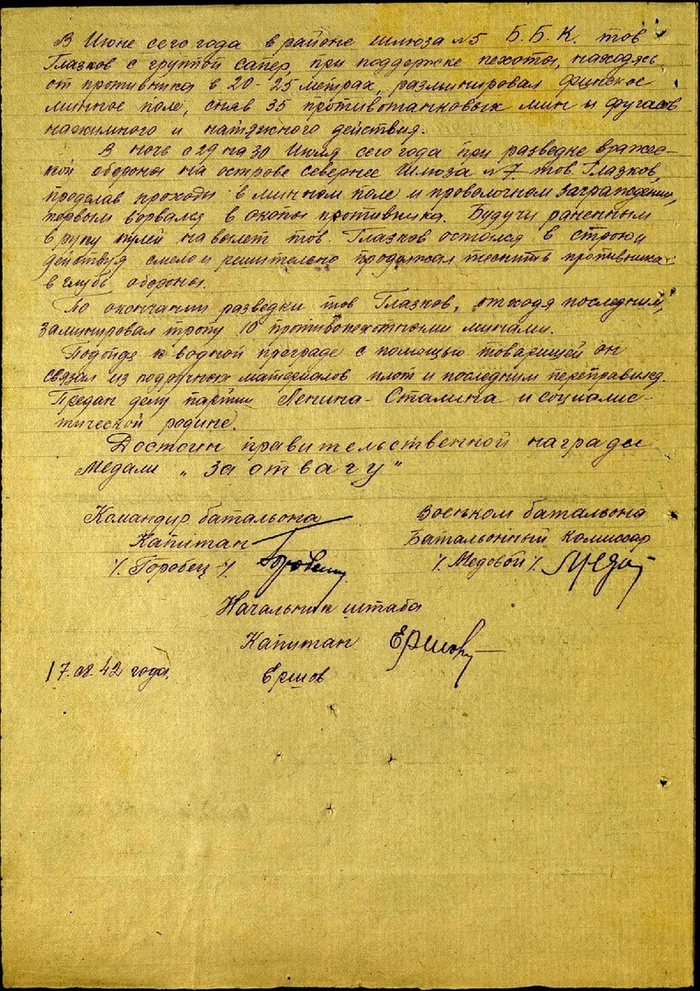 В Июне сего года в районе шлюза №5 Б.Б.К. тов
Глазков с группой сапер, при поддержке пехоты, находясь
от противника в 20-25 метрах, разминировал финское
минное поле, сняв 35 противотанковых мин и фугасов
нажимного и натяжного действия.
В ночь с 29 на 30 Июля сего года при разведке вражес-
кой обороны на острове севернее Шлюза №7 тов. Глазков,
проделав проходы в минном поле и проволочном заграждении,
первым ворвался в окопы противника. Будучи раненным
в руку пулей на вылет тов. Глазков остался в строю
действуя смело и решительно продолжал теснить противника
в глубь обороны.
По окончании разведки тов Глазков, отходя последним,
заминировал тропу 10 противопехотными минами.
Подойдя к водной преграде с помощью товарищей он
связал из подручных материалов плот и последним переправился.
Предан делу партии Ленина-Сталина и социалис-
тической родине.
Достоин правительственной награды
Медали „За отвагу"
Командир батальона Военком батальона
Капитан Батальонный Комиссар
/. Горобец /. /. Медовой /.
Начальник штаба
Капитан Ершов
17.08.42 года. Ершов